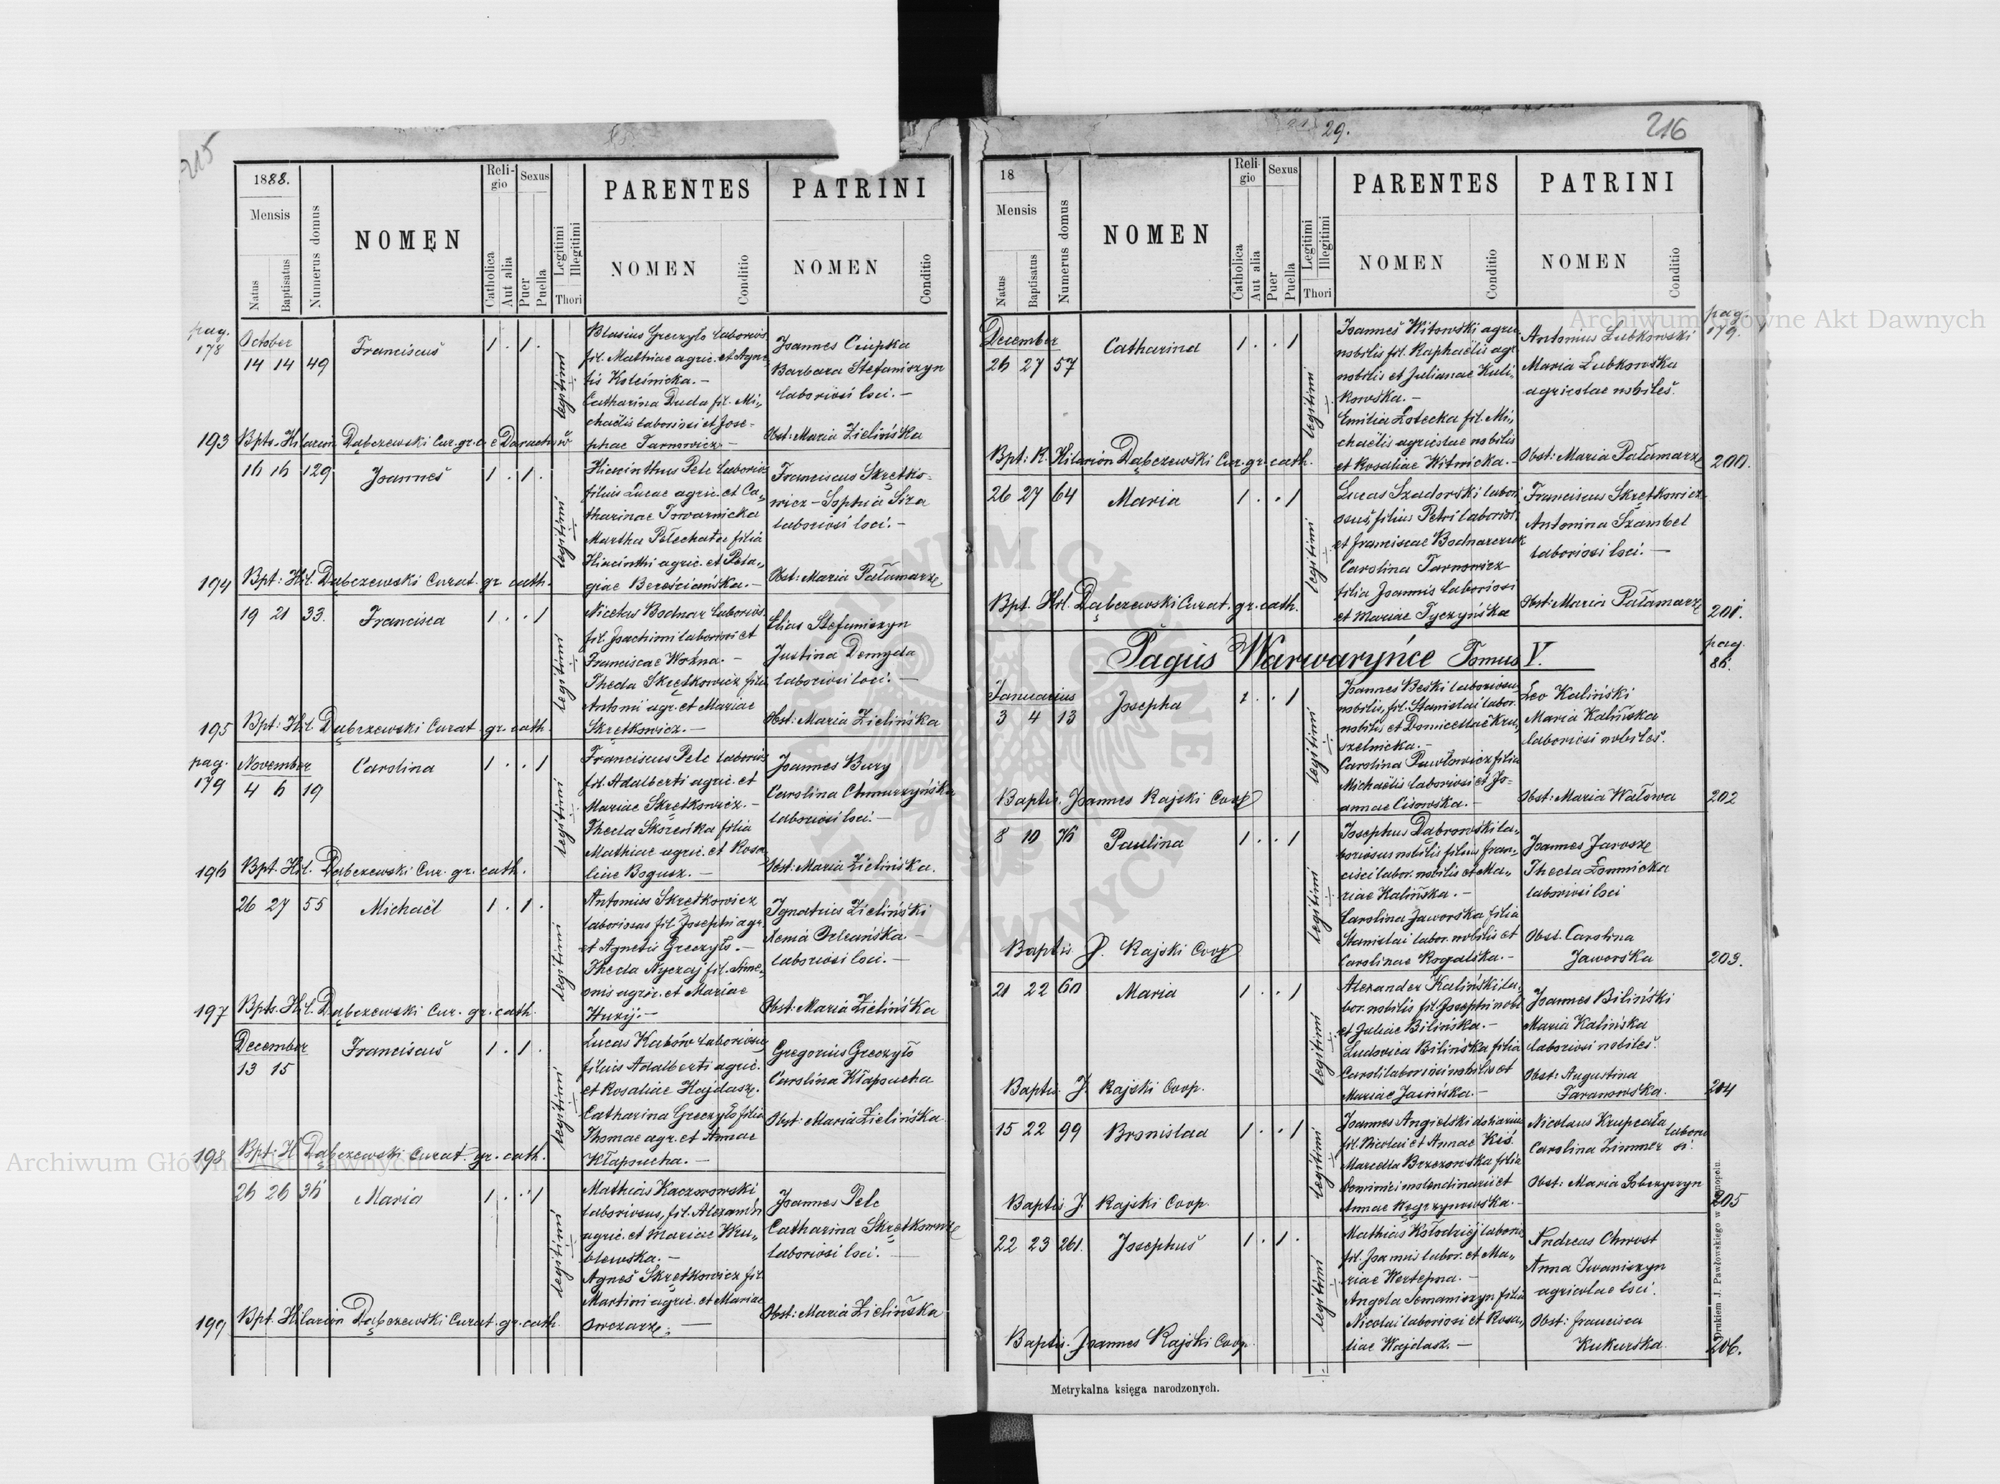 215
1888.
Mensis
Natus
Baptisatus
Numerus domus
NOMEN
Religio
Catholica
Aut alia
Sexus
Puer
Puella
Legitimi
Illegitimi
Thori
PARENTES
NOMEN
Conditio
PATRINI
NOMEN
Conditio
pag. 178
October
14 14 49
Franciscus
1 . 1 .
legitimi
Blasius Greczyło laborios.
fil. Mathiae agric. et Agne-
tis Koleśnicka. —
Catharina Duda fil. Mi-
chaëlis laboriosi et Jose-
phae Tarnowicz. —
Joannes Ciupka
Barbara Stefaniszyn
laboriosi loci. —
Obst: Maria Zielińska
193
Bpts. Hilarion Dąbczewski Cur. gr. c.
129
Joannes
1 . 1 .
legitimi
Hiacinthus Pelc laborios.
filius Lucae agric. et Ca-
tharinae Towarnicka
Martha Pelechata filia
Hiacinthi agric. et Pela-
giae
Franciscus Skrętko-
wicz — Sophia Siza
laboriosi loci. —
Obst: Maria Pałamarz
194
Bpt: Hil. Dąbczewski Curat. gr. cath.
19 21 33.
Francisca
1 . . 1
legitimi
Nicetas Bodnar laborios.
fil. Joachimi laboriosi et
Franciscae Woźna. —
Thecla Skrętkowicz filia
Antoni agr. et Mariae
Skrętkowicz. —
Elias Stefaniszyn
Justina Demyda
laboriosi loci. —
Obst: Maria Zielińska
195
Bpt: Hil. Dąbczewski Curat. gr. cath.
pag. 179
November
19
Carolina
1 . . 1
legitimi
Franciscus Pelc laborios.
fil. Adalberti agric. et
Mariae Skrętkowicz. —
Thecla
Mathiae agric. et Rosa-
liae Bogusz. —
Joannes Bury
Carolina Chmurzyńska
laboriosi loci. —
Obst: Maria Zielińska.
196
Bpt. Hil. Dąbczewski Cur. gr. cath.
26 27 55
Michaël
1 . 1 .
legitimi
Antonius Skrętkowicz
laboriosus fil. Josephi agr.
et Agnetis Greczyło. —
Thecla Nyczaj fil. Sime-
onis agric. et Mariae
Ignatius Zieliński
laboriosi loci. —
Obst: Maria Zielińska
197
Bpts. Hil. Dąbczewski Cur. gr. cath.
December
13 15
Franciscus
1 . 1 .
legitimi
Lucas Kabów laboriosus
filius Adalberti agric.
et Rosaliae Hajdasz.
Catharina Greczyło filia
Thomae agr. et Annae
Kłapoucha. —
Gregorius Greczyło
Carolina Kłapoucha
Obst: Maria Zielińska
198
Bpt: H. Dąbczewski Curat gr. cath.
Maria
1 . . 1
legitimi
Mathias Kaczorowski
laboriosus, fil. Alexandri
agric. et Mariae
Agnes Skrętkowicz fil.
Martini agric. et Mariae
Owczarz. —
Joannes Pelc
Catharina Skrętkowicz
laboriosi loci. —
Obst: Maria Zielińska
199
Bpt. Hilarion Dąbczewski Curat. gr. cath.
29.
216
18
Mensis
Natus
Baptisatus
Numerus domus
NOMEN
Religio
Catholica
Aut alia
Sexus
Puer
Puella
Legitimi
Illegitimi
Thori
PARENTES
NOMEN
Conditio
PATRINI
NOMEN
Conditio
pag. 179.
December
26 27 57
Catharina
1 . . 1
legitimi
Joannes Witowski agric.
nobilis fil. Raphaëlis agr.
nobilis et Julianae Kuli-
kowska. —
Emilia Łotecka fil. Mi-
chaëlis agricolae nobilis
et Rosaliae Witnicka. —
Antonius Łubkowski
Maria Łubkowska
agricolae nobiles.
Obst: Maria Pałamarz
200.
Bpt: R. Hilarion Dąbczewski Cur. gr. cath.
26 27 64
Maria
1 . . 1
legitimi
Lucas Szadorski labori-
osus filius Petri laboriosi
et Franciscae Bodnarczuk
Carolina Tarnowicz
filia Joannis laboriosi
et Mariae Tyczyńska
Franciscus Skrętkowicz
Antonina Szambel
laboriosi loci. —
Obst: Maria Pałamarz
201.
Bpt. Hil. Dąbczewski Curat. gr. cath.
Pagus Warwaryńce Tomus V.
pag. 86.
Januarius
3 4 13
Josepha
1 . . 1
legitimi
Joannes Beski laboriosus
nobilis, fil. Stanislai labor.
nobilis et Domicellae Kru-
szelnicka. —
Carolina Pawłowicz filia
Michaëlis laboriosi et Jo-
annae Cisowska. —
Leo Kaliński
Maria Kalińska
laboriosi nobiles.
Obst: Maria Wałowa
202
Baptis. Joannes Rajski Coop
8 10
Paulina
1 . . 1
legitimi
Josephus Dąbrowski la-
boriosus nobilis filius Fran-
cisci labor. nobilis et Ma-
riae Kalińska. —
Carolina Jaworska filia
Stanislai labor. nobilis et
Carolinae Rogalska. —
Joannes Jarosz
Thecla Łomnicka
laboriosi loci
Obst. Carolina
Jaworska
203.
Baptis J. Rajski Coop
21 22 60
Maria
1 . . 1
legitimi
Alexander Kaliński la-
bor. nobilis fil. Josephi nobil.
et Juliae Bilińska. —
Ludovica Bilińska filia
Caroli laboriosi nobilis et
Mariae Jasińska. —
Joannes Biliński
Maria Kalińska
laboriosi nobiles.
Obst: Augustina
Taranowska.
204
Baptis J. Rajski Coop.
15 22 99
Bronislaa
1 . . 1
legitimi
Joannes Angielski
fil. Nicolai et Annae Kiś.
Marcella Brzezowska filia
Dominici molendinarii et
Annae Węgrzynowska. —
Nicolaus Krupcała
Carolina Zimmer laboriosi
Obst: Maria Soberyszyn
205
Baptis J. Rajski Coop.
22 23 261.
Josephus
1 . 1 .
legitimi
Mathias Kołodziej laborios.
fil. Joannis labor. et Ma-
riae Wertepna. —
Angela Semaniszyn filia
Nicolai laboriosi et Rosa-
liae Wajdasz. —
Andreas Chwost
Anna Iwaniszyn
agricolae loci.
Obst: Francisca
Kukurska.
206.
Baptis. Joannes Rajski Coop.
Metrykalna księga narodzonych.
Drukiem J. Pawłowskiego w
Archiwum Główne Akt Dawnych
Archiwum Główne Akt Dawnych
ARCHIWUM GŁÓWNE AKT DAWNYCH